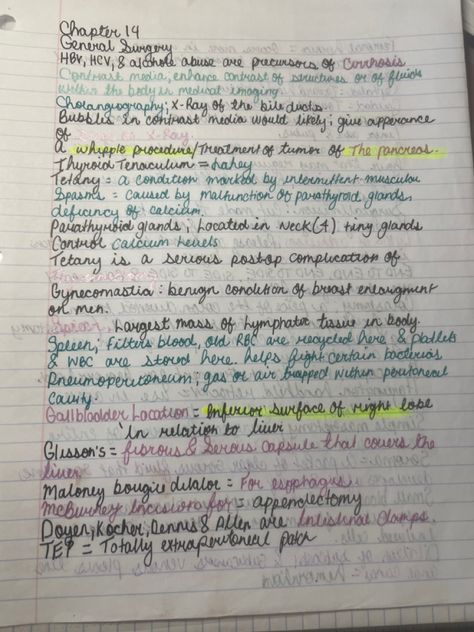 Chapter 14
General Surgery
HBV, HCV, & alcohole abuse are precursors of Cirrhosis.
Contrast media, enhance contrast of structures or of fluids
within the body in medical imaging.
Cholangiography; X-Ray of the bile ducts.
Bubbles in contrast media would likely; give apperance
of
A whipple procedure/Treatment of tumor of The pancreas.
Thyroid Tenaculum = Lahey
Tetany = a condition marked by intermittent muscular
Spasms = caused by malfunction of parathyroid glands.
deficancy of calcium.
Parathyroid glands; Located in neck (4) tiny glands
Control calcium levels
Tetany is a serious postop complication of
Gynecomastia: benign condition of breast enlargment
on men.
Largest mass of Lymphatic tissue in body.
Spleen; filters blood, old RBC are recycled here & platlets
& WBC are stored here. helps fight certain bacterias
Pneumoperitoneum; gas or air trapped within peritoneal
cavity
Gallbladder Location = Inferior surface of right lobe
in relation to liver
Glisson's = fibrous & Serous capsule that covers the
liver
Maloney bougie dilator = For esophagus
McBurney Incision for = appendectomy
Doyen, Kocher, Dennis & Allen are Intestinal Clamps.
TEP = Totally extraperitoneal patch